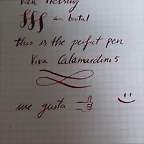 Van Helsing
in brutal
this is the perfect pen
Viva Calamardinus
me gusta